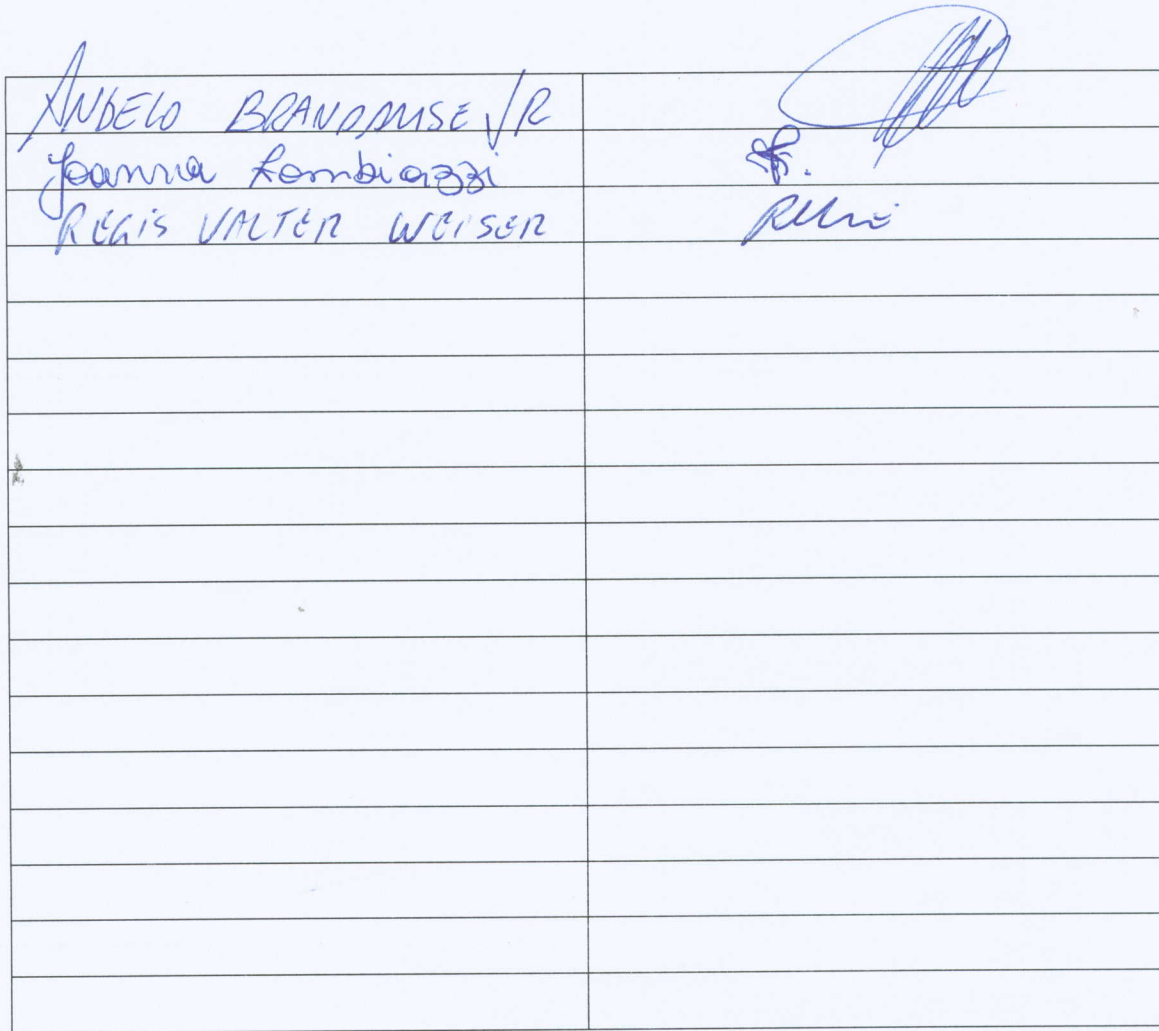 ANGELO BRANDALISE JR
Joanna Lambiazzi
REGIS VALTER WEISER